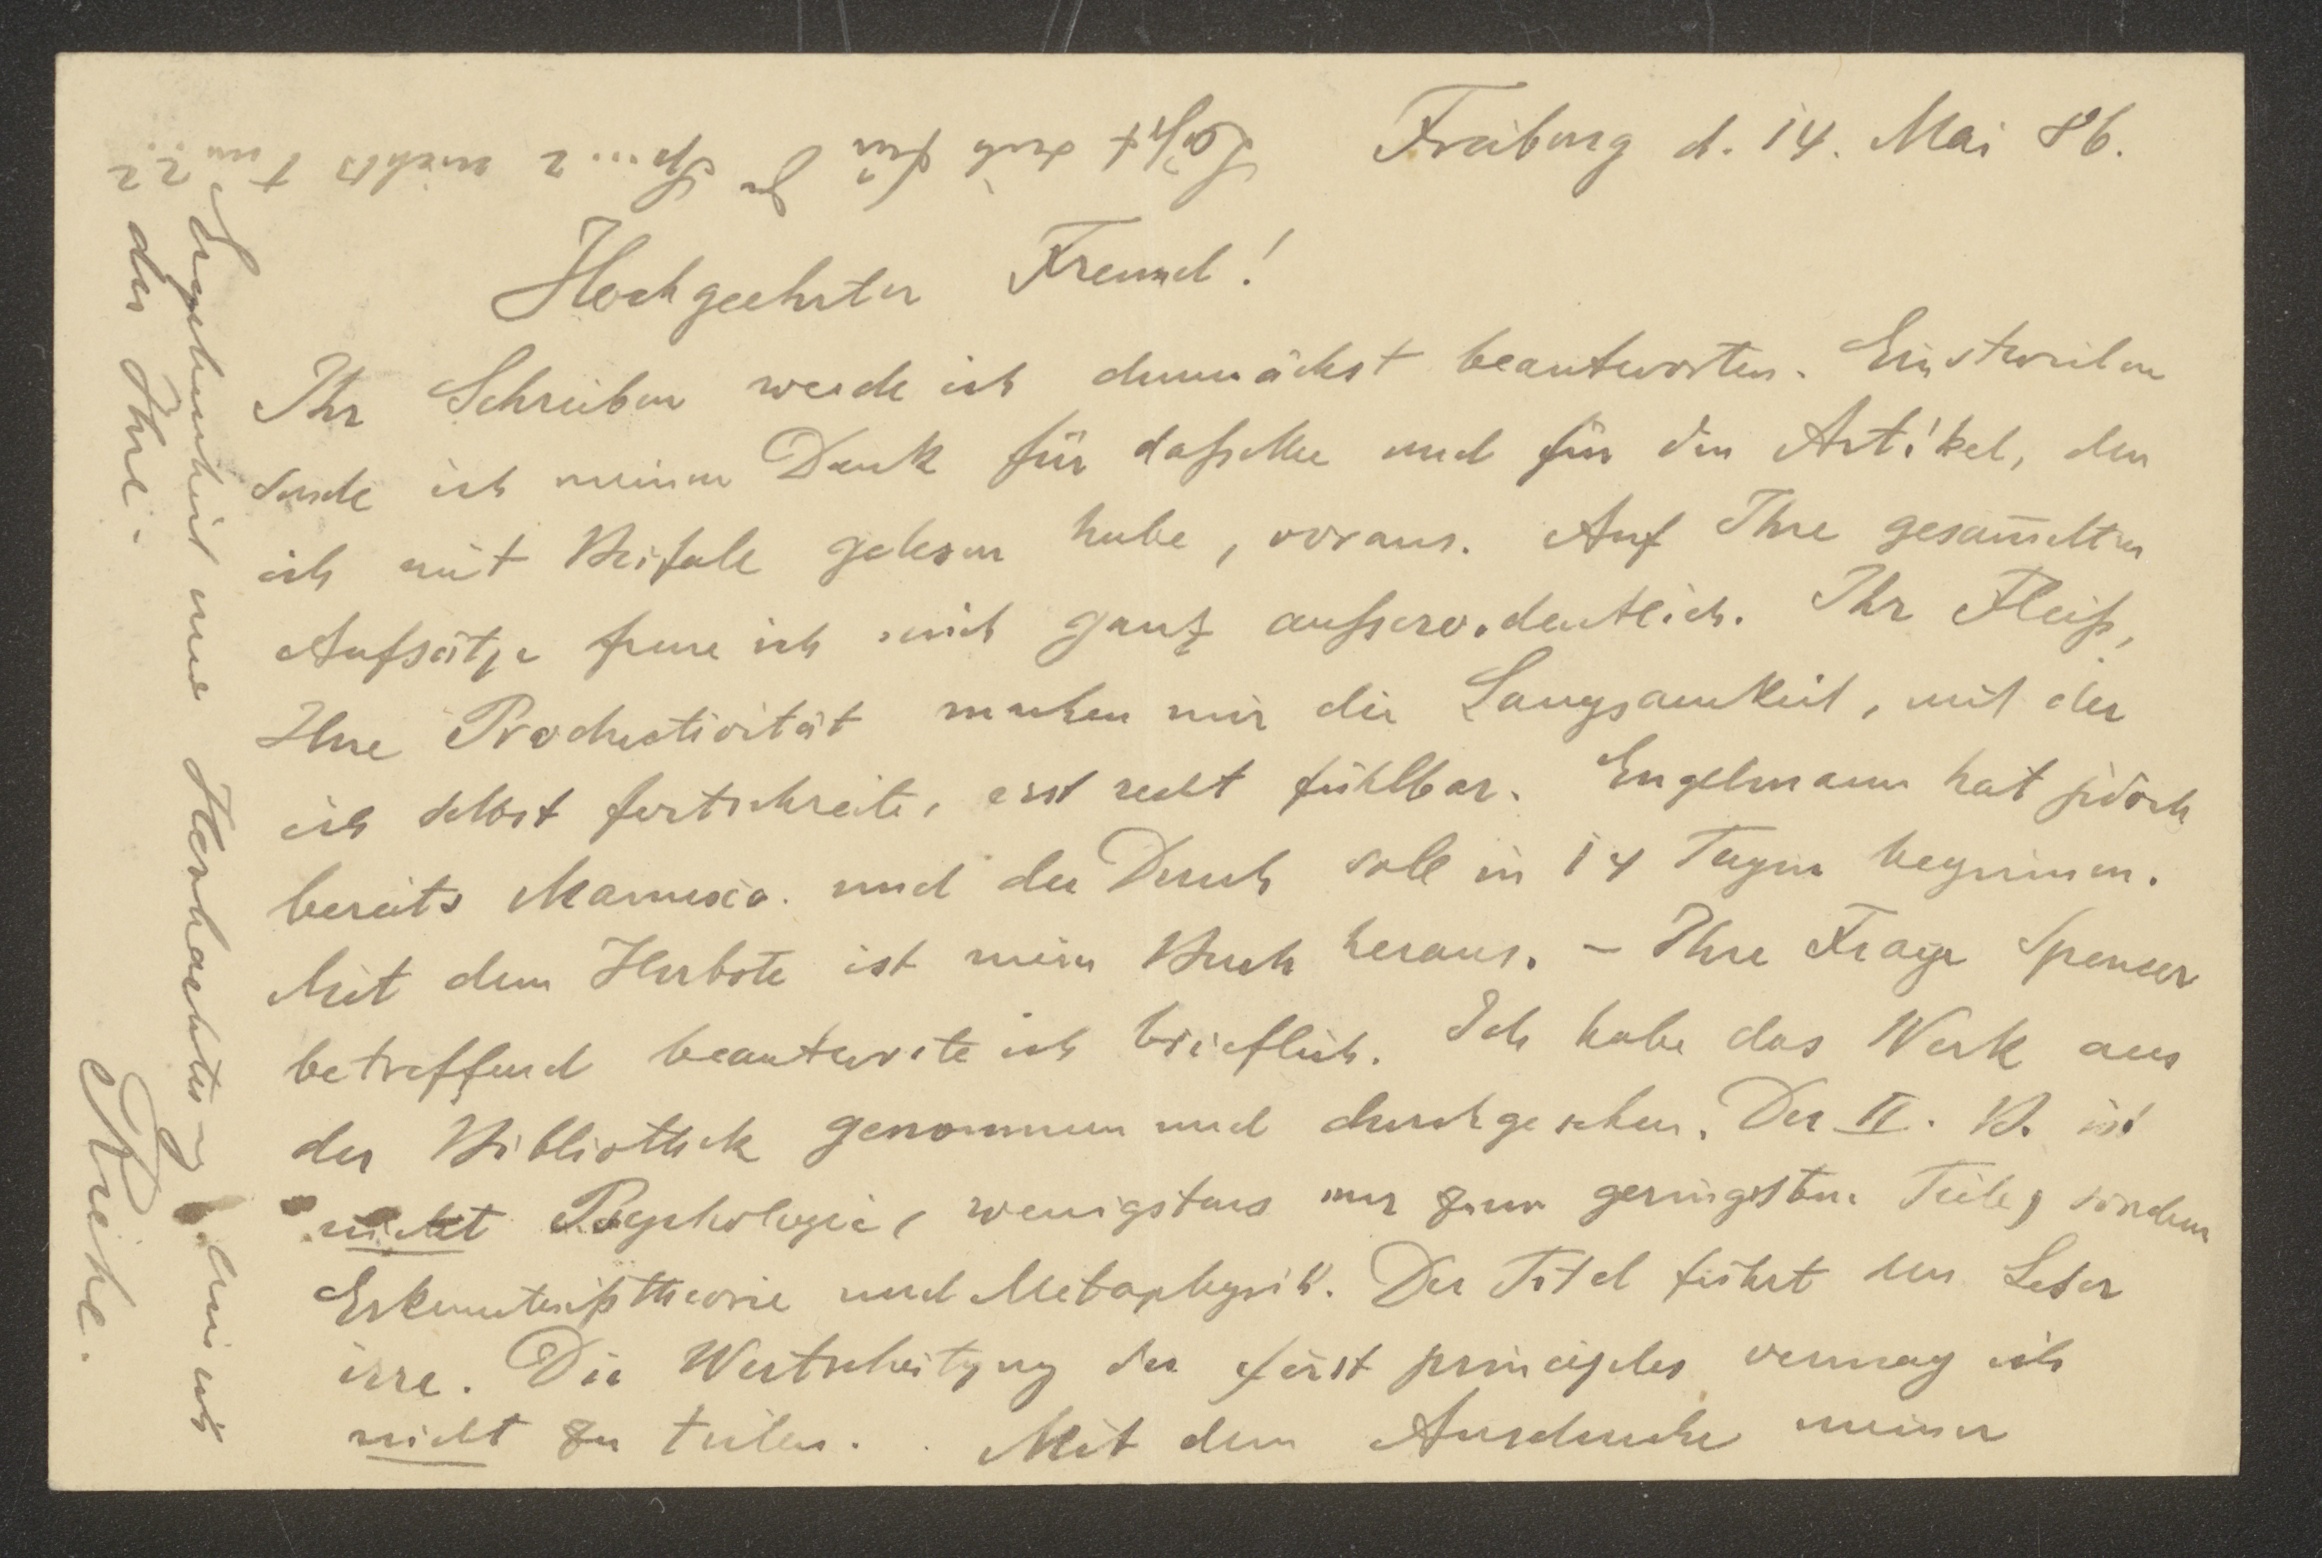 Freiburg d. 14. Mai 86.
Hochgeehrter Freund!
Ihr Schreiben werde ich demnächst beantworten. Einstweilen
sende ich meinen Dank für daßelbe und für den Artikel, den
ich mit Beifall gelesen habe, voraus. Auf Ihre gesam̅elten
Aufsätze freue ich mich ganz außerordentlich. Ihr Fleiß,
Ihre Productivität machen mir die Langsamkeit, mit der
ich selbst fortschreite, erst recht fühlbar. Engelmann hat jedoch
bereits Manuscr. und der Druck soll in 14 Tagen beginnen.
Mit dem Herbste ist mein Buch heraus. – Ihre Frage Spencer
betreffend beantworte ich brieflich. Ich habe das Werk aus
der Bibliothek genommen und durchgesehen. Der II. B. ist
nicht Psychologie, wenigstens nur zum geringsten Teile, sondern
Erkenntnißtheorie und Metaphysik. Der Titel führt den Leser
irre. Die Wertschätzung der first principles vermag ich
nicht zu teilen. Mit dem Ausdrucke meiner
Ergebenheit und Hochachtung bin ich
der Ihre.
ARiehl.
Läßt sich für Sp...r nichts tun??